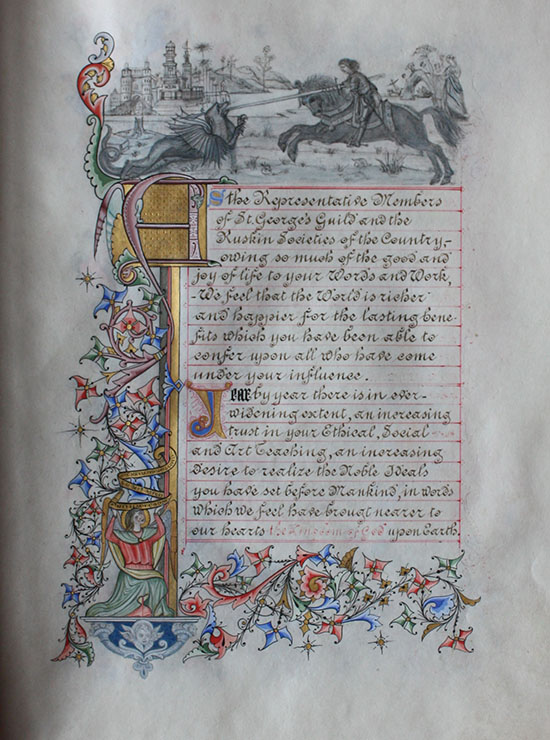 As the Representative Members
of St. George's Guild and the
Ruskin Societies of the Country,-
owing so much of the good and
joy of life to your Words and Work,
-We feel that the World is richer
and happier for the lasting bene-
fits which you have been able to
confer upon all who have come
under your influence.
Year by year there is in ever-
widening extent, an increasing
trust in your Ethical, Social
and Art Teaching, an increasing
desire to realize the Noble Ideals
you have set before Mankind, in words
which we feel have brought nearer to
our hearts the Kingdom of God upon Earth.